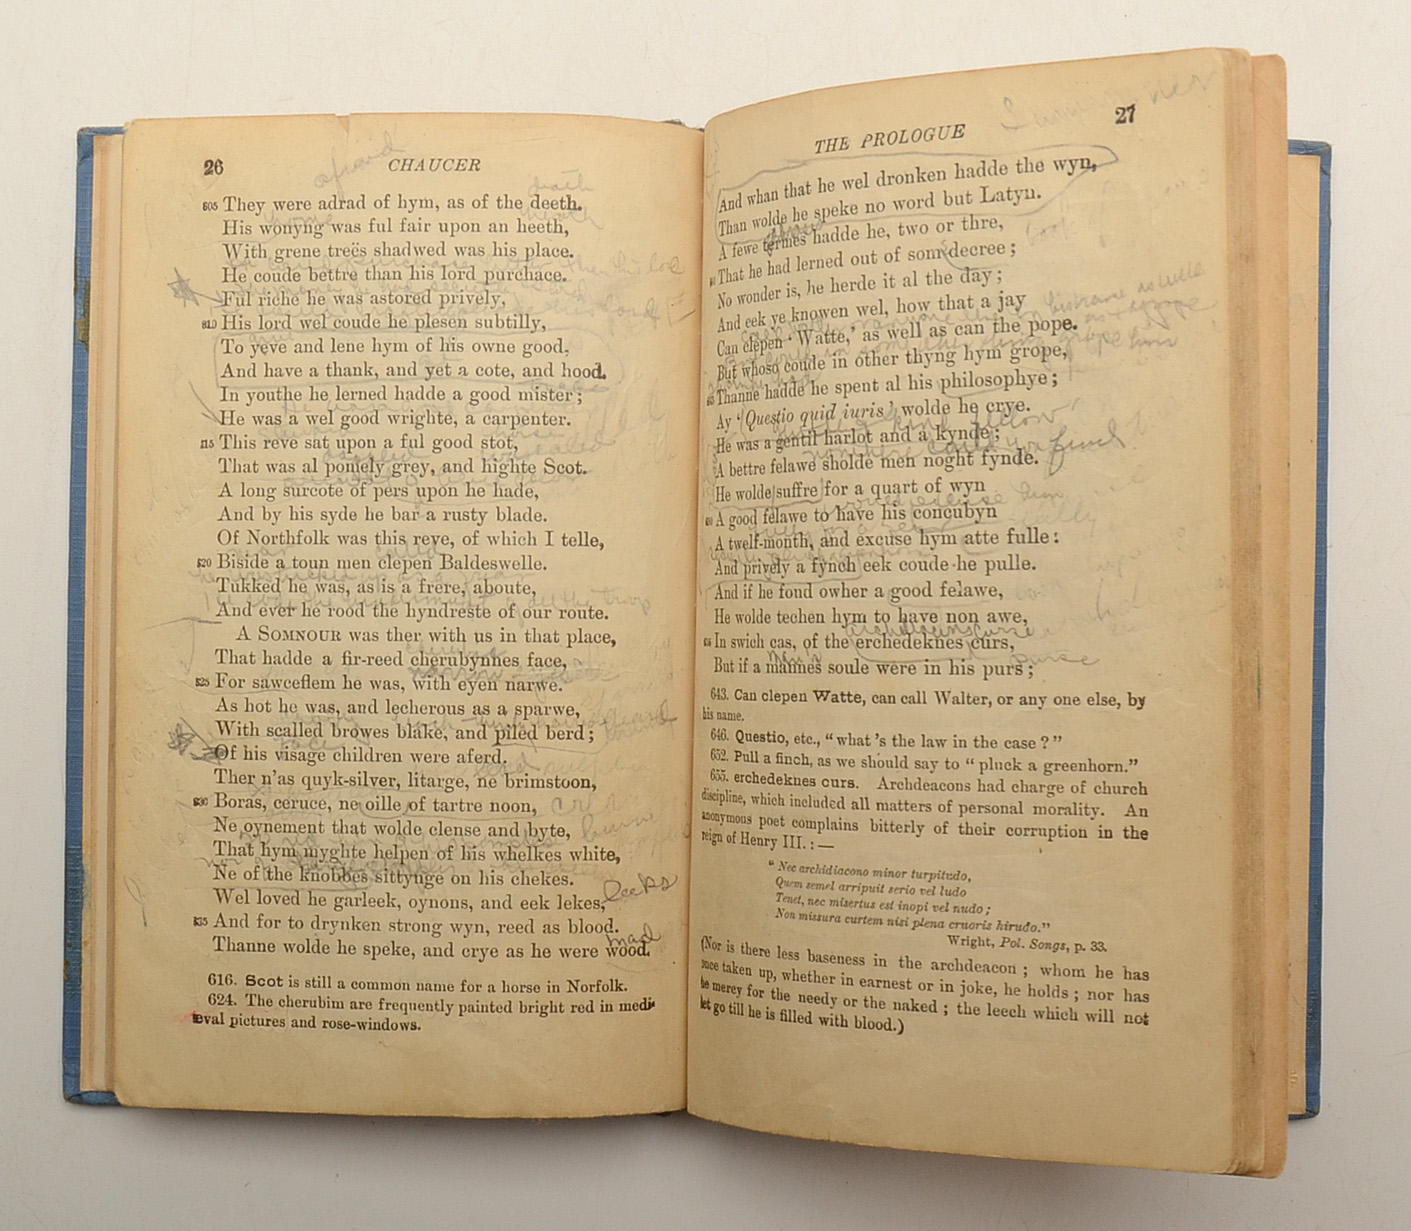 26
CHAUCER
afraid
death
605 They were adrad of hym, as of the deeth.
home
heath
His wonyng was ful fair upon an heeth,
With grene treës shadwed was his place.
He coude bettre than his lord purchace.
Ful riche he was astored prively,
810 His lord wel coude he plesen subtilly,
To yeve and lene hym of his owne good,
And have a thank, and yet a cote, and hood.
In youthe he lerned hadde a good mister;
He was a wel good wrighte, a carpenter.
615 This reve sat upon a ful good stot,
That was al pomely grey, and highte Scot.
A long surcote of pers upon he hade,
And by his syde he bar a rusty blade.
Of Northfolk was this reve, of which I telle,
620 Biside a toun men clepen Baldeswelle.
Tukked he was, as is a frere, aboute,
And ever he rood the hyndreste of our route.
A SOMNOUR was ther with us in that place,
That hadde a fir-reed cherubynnes face,
625 For sawceflem he was, with eyen narwe.
As hot he was, and lecherous as a sparwe,
With scalled browes blake, and piled berd;
Of his visage children were aferd.
Ther n'as quyk-silver, litarge, ne brimstoon,
630 Boras, ceruce, ne oille of tartre noon,
Ne oynement that wolde clense and byte,
That hym myghte helpen of his whelkes white,
Ne of the knobbes sittynge on his chekes.
Wel loved he garleek, oynons, and eek lekes,
leeks
635 And for to drynken strong wyn, reed as blood.
mad
Thanne wolde he speke, and crye as he were wood.
616. Scot is still a common name for a horse in Norfolk.
624. The cherubim are frequently painted bright red in medi-
æval pictures and rose-windows.
Summoner
THE PROLOGUE
27
And whan that he wel dronken hadde the wyn,
Than wolde he speke no word but Latyn.
A fewe termes hadde he, two or thre,
That he had lerned out of som decree;
No wonder is, he herde it al the day;
And eek ye knowen wel, how that a jay
Can clepen 'Watte,' as well as can the pope.
But whoso coude in other thyng hym grope,
Thanne hadde he spent al his philosophye;
Ay 'Questio quid iuris' wolde he crye.
He was a gentil harlot and a kynde;
A bettre felawe sholde men noght fynde.
He wolde suffre for a quart of wyn
A good felawe to have his concubyn
A twelf-month, and excuse hym atte fulle:
And prively a fynch eek coude he pulle.
And if he fond owher a good felawe,
He wolde techen hym to have non awe,
In swich cas, of the erchedeknes curs,
man's
purse
But if a mannes soule were in his purs;
643. Can clepen Watte, can call Walter, or any one else, by
his name.
646. Questio, etc., "what's the law in the case?"
652. Pull a finch, as we should say to "pluck a greenhorn."
655. erchedeknes curs. Archdeacons had charge of church
discipline, which included all matters of personal morality. An
anonymous poet complains bitterly of their corruption in the
reign of Henry III.:—
"Nec archidiacono minor turpitudo,
Quem semel arripuit serio vel ludo
Tenet, nec misertus est inopi vel nudo;
Non missura curtem nisi plena cruoris hirudo."
Wright, Pol. Songs, p. 33.
(Nor is there less baseness in the archdeacon; whom he has
once taken up, whether in earnest or in joke, he holds; nor has
he mercy for the needy or the naked; the leech which will not
let go till he is filled with blood.)